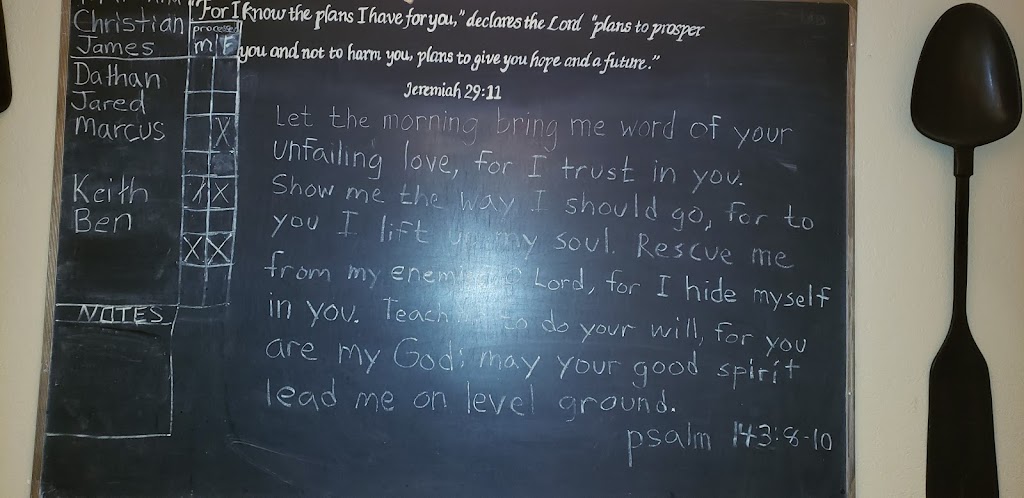 Christian
James
Dathan
Jared
Marcus
Keith
Ben
NOTES
process
m F
X
X X
X X
"For I Know the plans I have for you," declares the Lord "plans to prosper
you and not to harm you, plans to give you hope and a future."
Jeremiah 29:11
Let the morning bring me word of your
unfailing love, for I trust in you.
Show me the way I should go, for to
you I lift up my soul. Rescue me
from my enemies Lord, for I hide myself
in you. Teach to do your will, for you
are my God; may your good spirit
lead me on level ground.
psalm 143:8-10